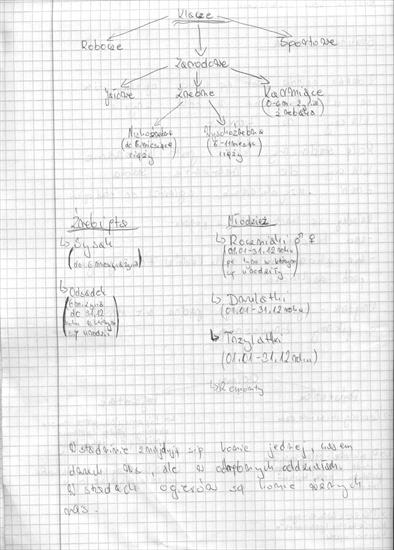 Klacze
Robocze
Sportowe
Zarodowe
Jałowe
Źrebne
Karmiące
(0-6 m. życia
źrebięcia)
Niskoźrebne
(do 8 miesiąca
ciąży)
Wysokoźrebne
(8-11 miesiąc
ciąży)
Źrebięta
Młodzież
↳ Sysak
(do 6 mies. życia)
↳ Roczniaki ♂ ♀
(01.01-31.12 roku
po tym w którym
się urodziły
↳ Odsadek
6 m. życia
do 31.12
roku w którym
się urodził
↳ Dwulatki
(01.01-31.12 roku)
↳ Trzylatki
(01.01-31.12 roku)
↳ Remonty
W stadninie znajdują się konie jednej, czasem
dwóch ras, ale w odrębnych oddziałach.
W stadach ogierów są konie różnych
ras.